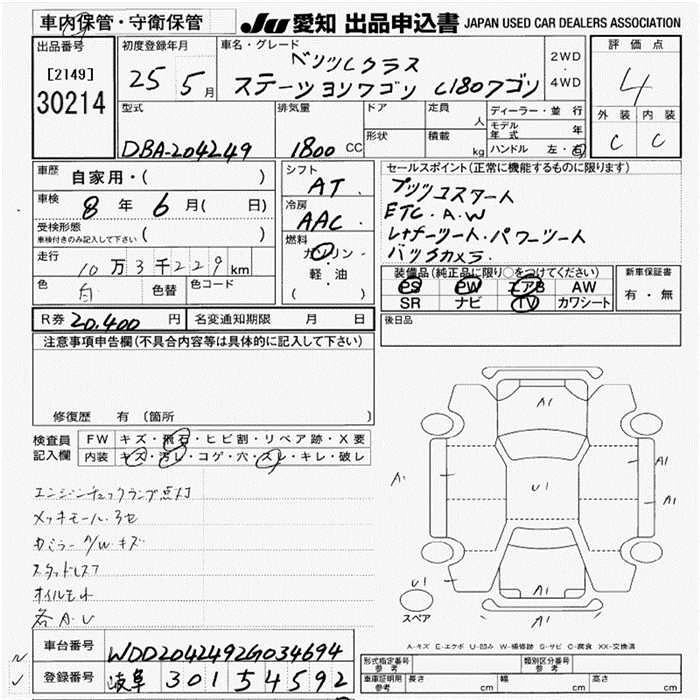 車内保管・守衛保管
JU 愛知 出品申込書 JAPAN USED CAR DEALERS ASSOCIATION
出品番号
[2149]
30214
初度登録年月
25 5月
車名・グレード
ベンツCクラス
ステーションワゴン C180ワゴン
2WD
・
4WD
評価点
4
外装 内装
C C
型式
DBA-204249
排気量
1800 CC
ドア
形状
定員 人
積載 kg
ディーラー・並行
モデル年式 年
ハンドル 左・右
車歴
自家用・( )
車検
8年 6月( 日)
受検形態
車検付きのみ記入して下さい ( )
走行
10万3千229km
色 白 色替 色コード
シフト
AT
冷房
AAC
燃料
ガソリン
・
軽・油
( )
セールスポイント(正常に機能するものに限ります)
プッシュスタート
ETC. A.W
レザーシート・パワーシート
バックカメラ
装備品(純正品に限り○をつけてください)
PS PW エアB AW
SR ナビ TV カワシート
新車保証書
有・無
R券 20,400円 名変通知期限 月 日
後日品
注意事項申告欄(不具合内容等は具体的に記入して下さい)
修復歴 有 〔箇所 〕
検査員記入欄
FW キズ・飛石・ヒビ割・リペア跡・X要
内装 キズ・汚レ・コゲ・穴・スレ・キレ・破レ
エンジンチェックランプ点灯
メッキモール、
カミラー A/W キズ
スタッドレス
オイルモレ
各A.U
A1
A1
A1
A1
U1
U1
A1
A1
スペア
A-キズ E-エクボ U-凹み W-補修跡 S-サビ C-腐食 XX-交換済
車台番号
WDD2042492G034694
登録番号
岐阜 301 す 4592
形式指定番号 参考
類別区分番号 参考
車庫証明用 参考 長さ 幅 高さ